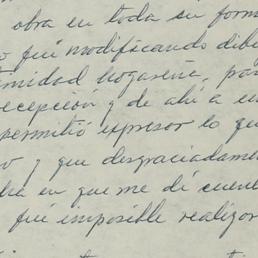 obra en toda su form
o fué modificando dibu
timidad hogareña, par
recepción y de ahí a en
permitió expresar lo que
o y que desgraciadame
en que me dí cuent
fué imposible realizar